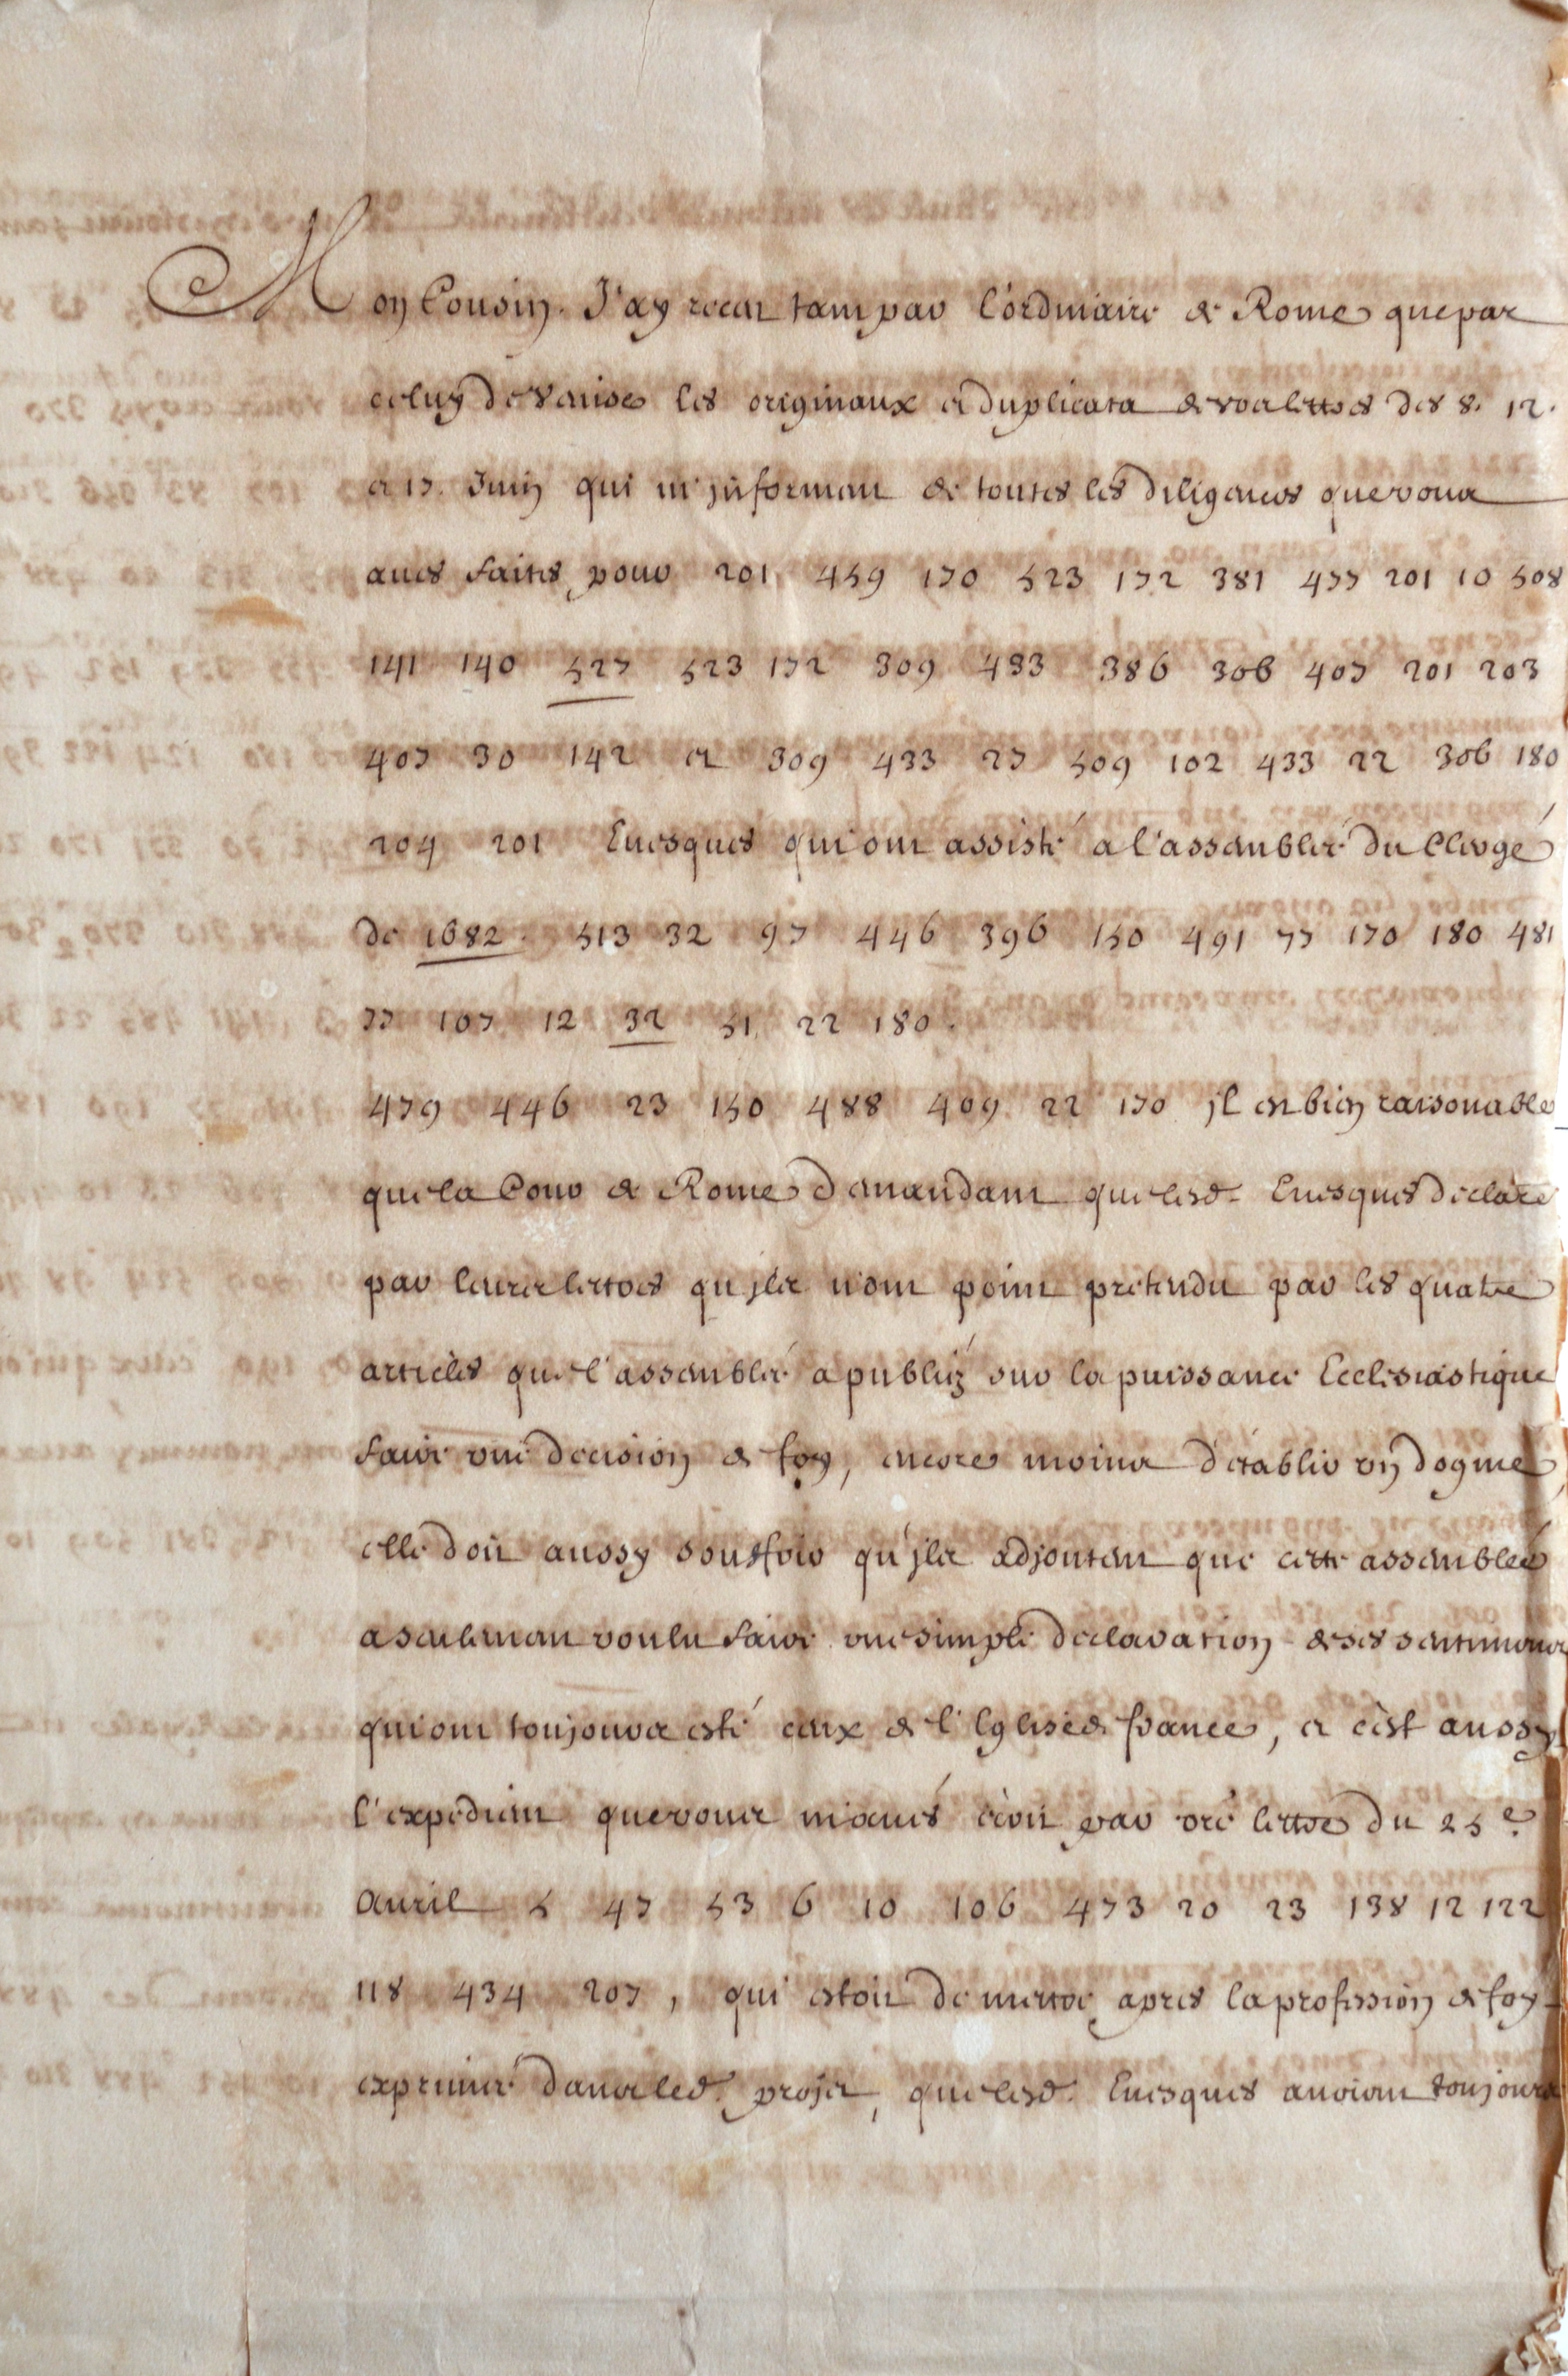 Mon Cousin. J'ay receu tant par l'ordinaire de Rome que par
celuy de Venise les originaux et duplicata de vos lettres des 8. 12.
et 17. Juin qui m'jnforment de toutes les diligences que vous
aues faites pour 201 459 170 523 172 381 477 201 10 508
141 140 527 523 172 309 433 386 306 407 201 203
407 30 142 et 309 433 27 509 102 433 22 306 180
204 201 Euesques qui ont assisté a l'assemblée du Clergé
de 1682. 513 32 97 446 396 150 491 77 170 180 481
77 107 12 32 51 22 180.
479 446 23 150 488 409 22 170 jl est bien raisonable
que la Cour de Rome demandant que lesd. Euesques declare
par leurs lettres qu'jls n'ont point pretendu par les quatre
articles que l'assemblée a publiéz sur la puissance Ecclesiastique
faire une decision de foy, encore moins d'établir un dogme
elle doit aussy soufrir qu'jls adjoutent que cette assemblée
a seulement voulu faire une simple declaration de ses sentimens
qui ont toujours esté ceux de l'Eglise de france, et c'est aussy
l'expedient que vous m'aués écrit par vre lettre du 25e.
Auril 5 47 53 6 10 106 473 20 23 138 12 122
118 434 207, qui estoit de mettre apres la profession de foy
exprimée dans led. projet, que lesd. Euesques auoient toujours